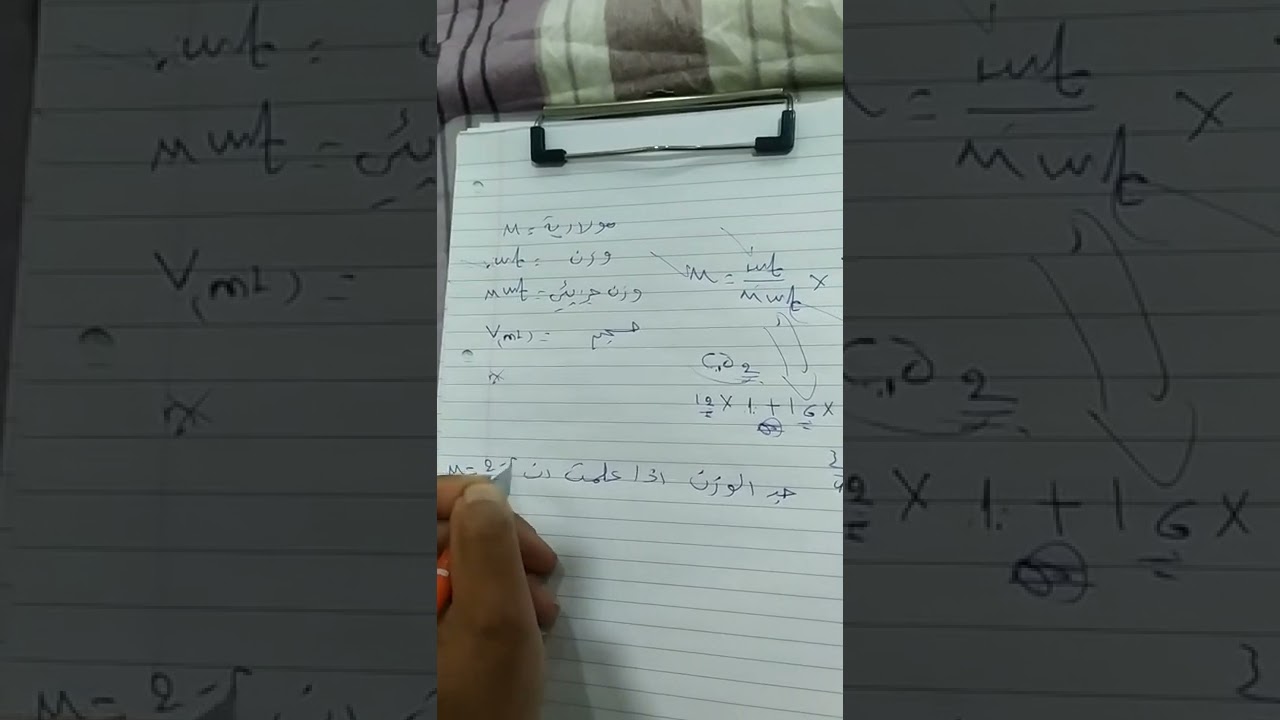 M = مولارية
wt. = وزن
Mwt = وزن جزيئي
V(ml) = حجم
M = wt / Mwt ×
CO2
12 × 1 + 16 ×
جد الوزن اذا علمت ان M = 2